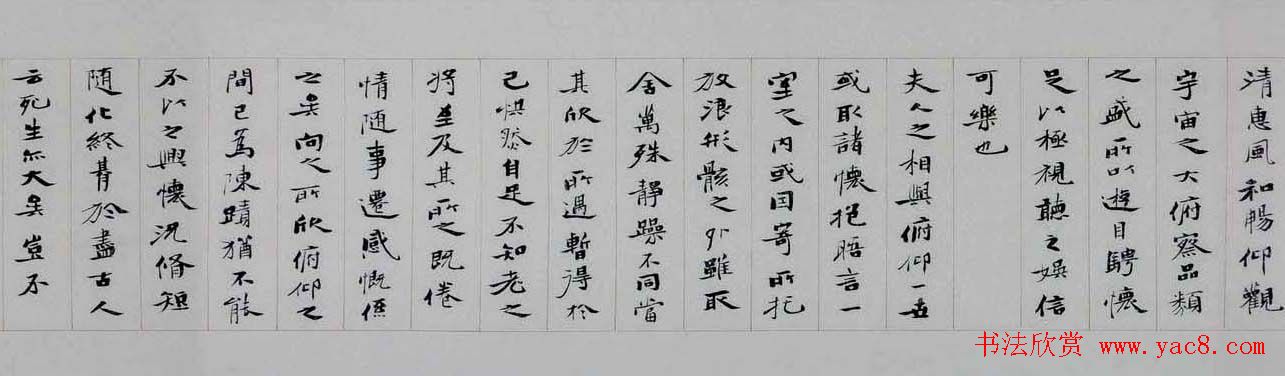 清惠風和暢仰觀
宇宙之大俯察品類
之盛所以遊目騁懷
足以極視聽之娛信
可樂也
夫人之相與俯仰一世
或取諸懷抱晤言一
室之內或因寄所托
放浪形骸之外雖取
舍萬殊靜躁不同當
其欣於所遇暫得於
己怏然自足不知老之
將至及其所之既倦
情隨事遷感慨係
之矣向之所欣俯仰之
間已為陳蹟猶不能
不以之興懷況脩短
隨化終朞於盡古人
云死生亦大矣豈不
书法欣赏 www.yac8.com